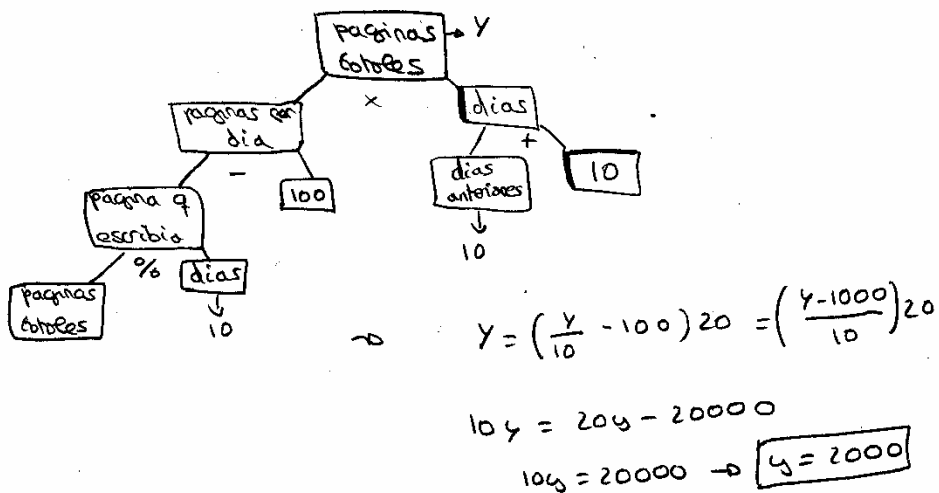 paginas → y
totales
x
paginas por
dia
dias
+
-
100
dias
anteriores
10
pagina q
escribia
10
%
dias
paginas
totales
10
→ Y = (y/10 - 100) 20 = (y-1000/10) 20
10y = 20y - 20000
10y = 20000 → y = 2000